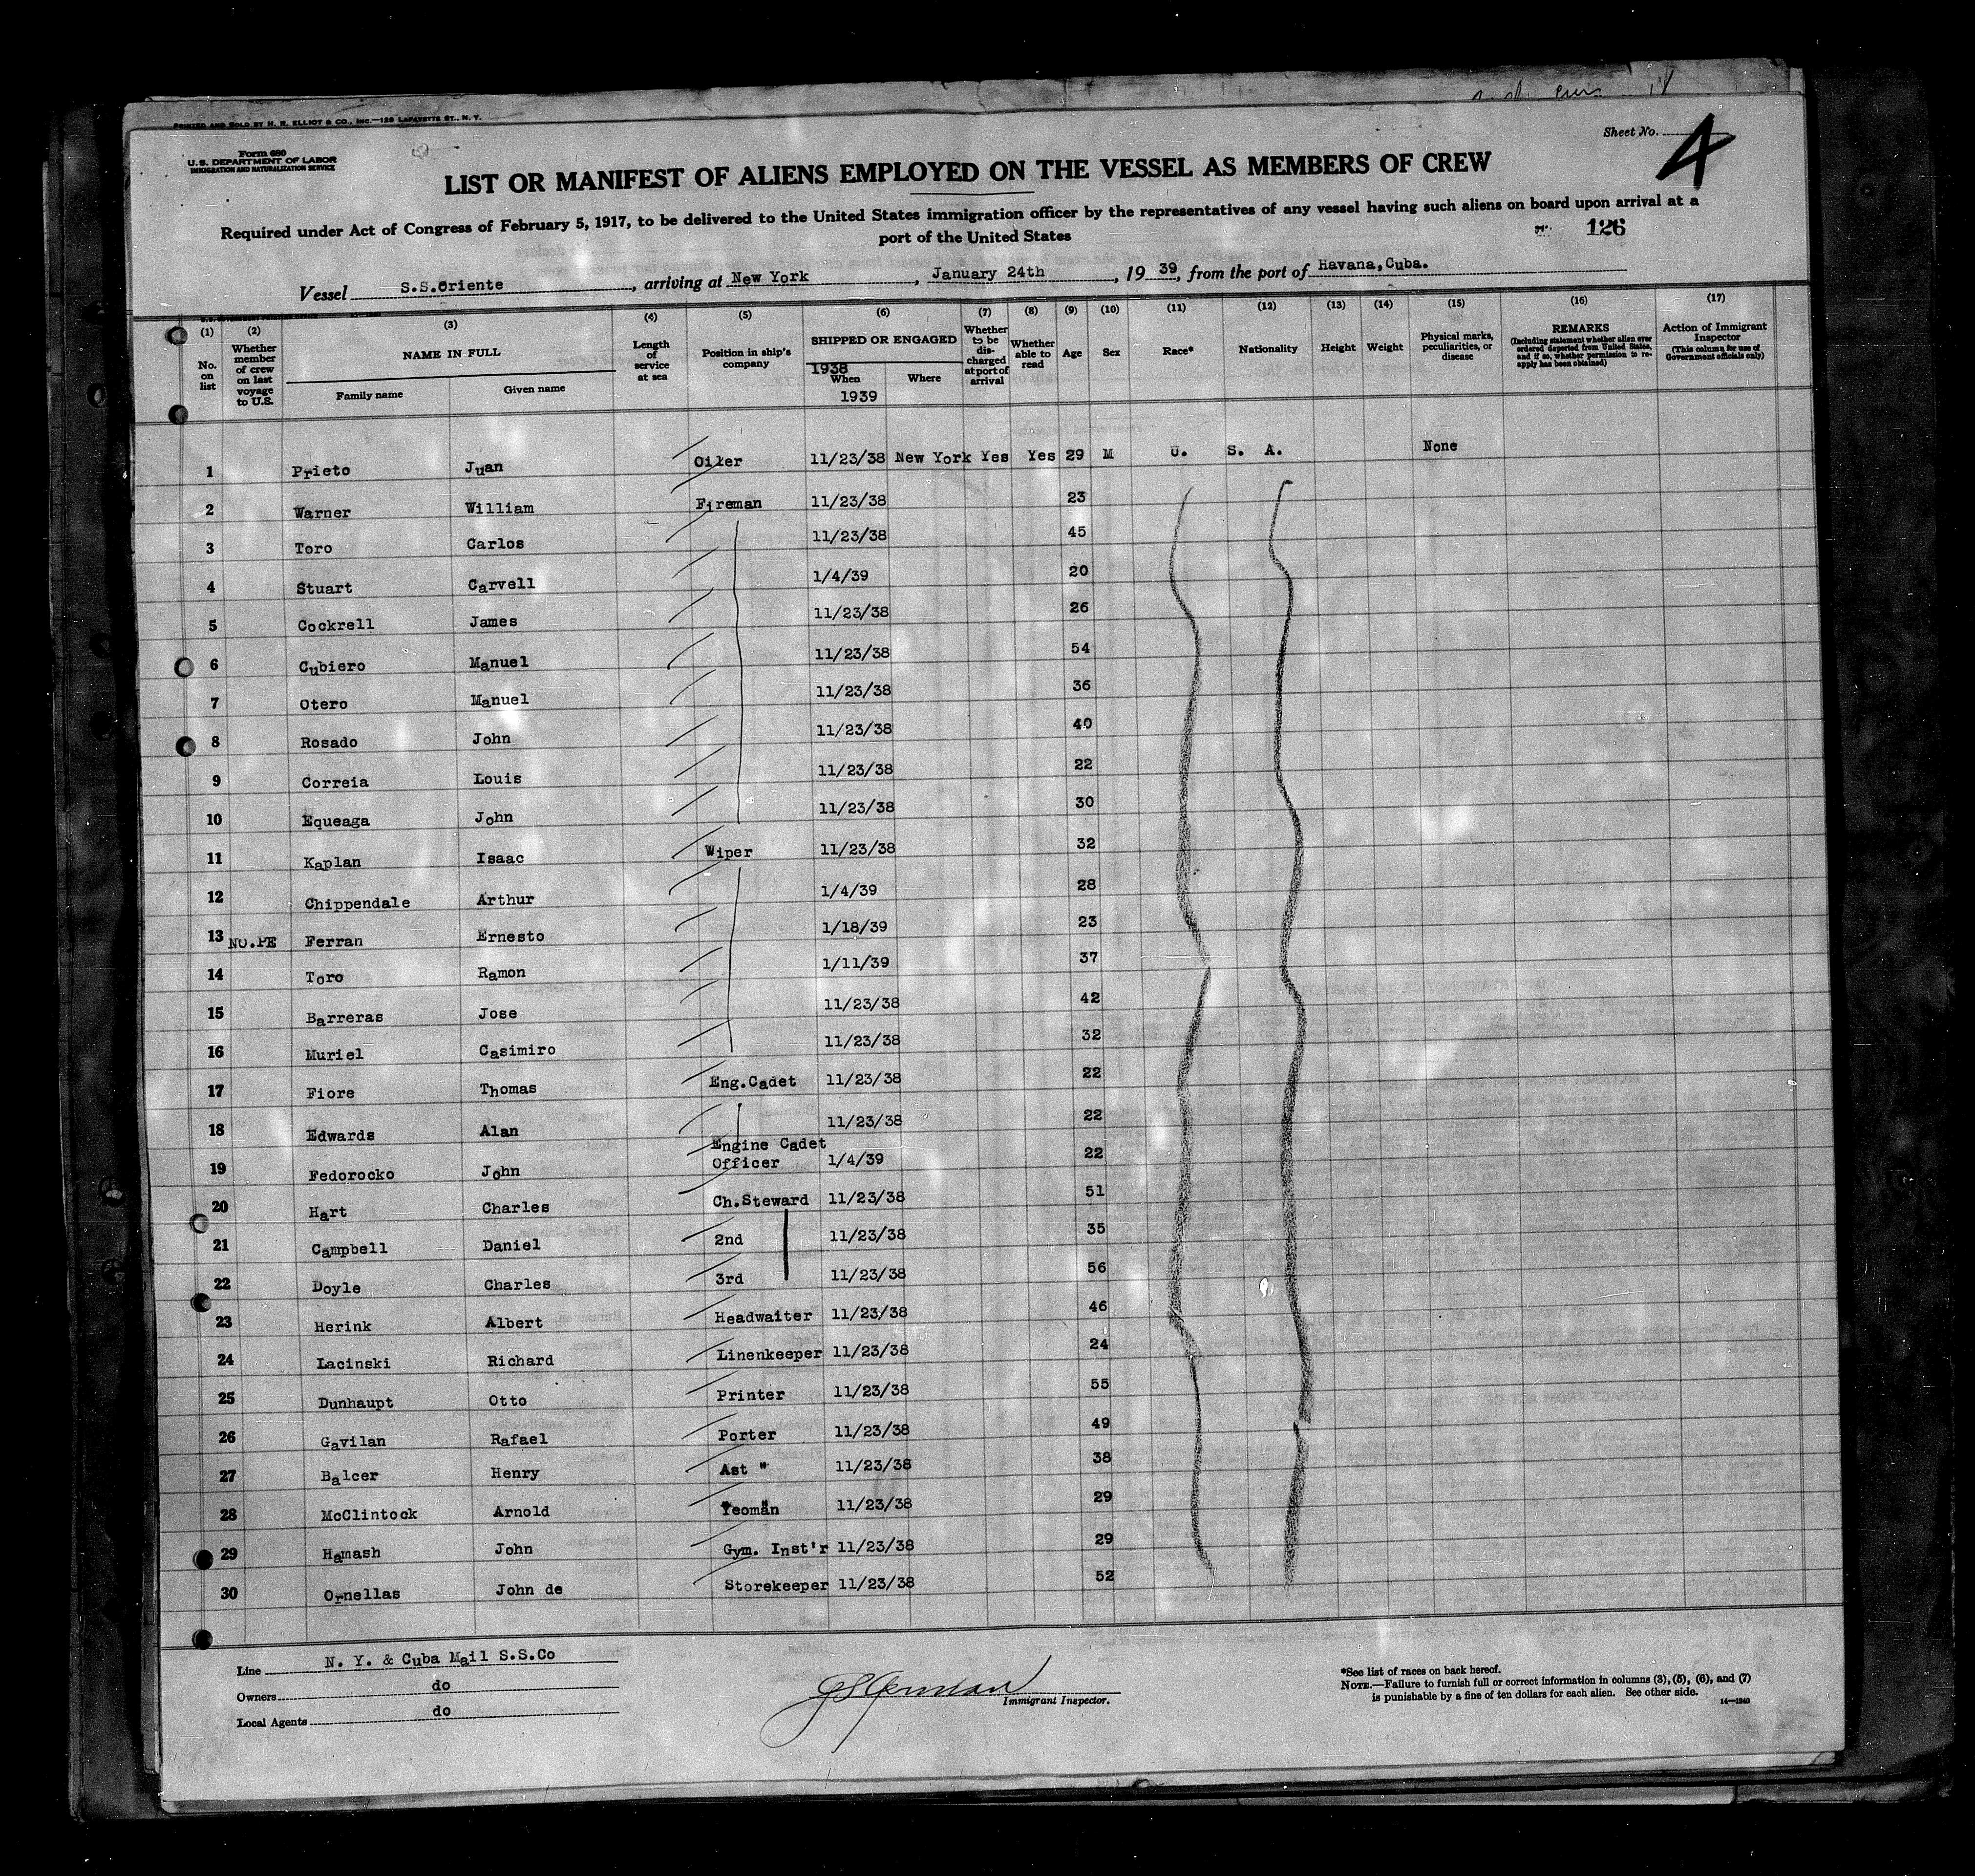 PRINTED AND SOLD BY H. R. ELLIOT & CO., INC.—129 LAFAYETTE ST., N. Y.
Form 680
U.S. DEPARTMENT OF LABOR
IMMIGRATION AND NATURALIZATION SERVICE
Sheet No. 4
LIST OR MANIFEST OF ALIENS EMPLOYED ON THE VESSEL AS MEMBERS OF CREW
Required under Act of Congress of February 5, 1917, to be delivered to the United States immigration officer by the representatives of any vessel having such aliens on board upon arrival at a
port of the United States
126
Vessel S.S.Oriente, arriving at New York, January 24th, 19 39, from the port of Havana,Cuba.
(1) No. on list
(2) Whether member of crew on last voyage to U.S.
(3) NAME IN FULL
Family name Given name
(4) Length of service at sea
(5) Position in ship's company
(6) SHIPPED OR ENGAGED
1938
When Where
1939
(7) Whether to be discharged at port of arrival
(8) Whether able to read
(9) Age
(10) Sex
(11) Race*
(12) Nationality
(13) Height
(14) Weight
(15) Physical marks, peculiarities, or disease
(16) REMARKS
(Including statement whether alien ever ordered deported from United States, and if so, whether permission to reapply has been obtained)
(17) Action of Immigrant Inspector
(This column for use of Government officials only)
1 Prieto Juan Oiler 11/23/38 New York Yes Yes 29 M U. S. A. None
2 Warner William Fireman 11/23/38 23
3 Toro Carlos 11/23/38 45
4 Stuart Carvell 1/4/39 20
5 Cockrell James 11/23/38 26
6 Cubiero Manuel 11/23/38 54
7 Otero Manuel 11/23/38 36
8 Rosado John 11/23/38 40
9 Correia Louis 11/23/38 22
10 Equeaga John 11/23/38 30
11 Kaplan Isaac Wiper 11/23/38 32
12 Chippendale Arthur 1/4/39 28
13 NO.PE Ferran Ernesto 1/18/39 23
14 Toro Ramon 1/11/39 37
15 Barreras Jose 11/23/38 42
16 Muriel Casimiro 11/23/38 32
17 Fiore Thomas Eng.Cadet 11/23/38 22
18 Edwards Alan 11/23/38 22
19 Fedorocko John Engine Cadet Officer 1/4/39 22
20 Hart Charles Ch.Steward 11/23/38 51
21 Campbell Daniel 2nd 11/23/38 35
22 Doyle Charles 3rd 11/23/38 56
23 Herink Albert Headwaiter 11/23/38 46
24 Lacinski Richard Linenkeeper 11/23/38 24
25 Dunhaupt Otto Printer 11/23/38 55
26 Gavilan Rafael Porter 11/23/38 49
27 Balcer Henry Ast " 11/23/38 38
28 McClintock Arnold Yeoman 11/23/38 29
29 Hamash John Gym. Inst'r 11/23/38 29
30 Ornellas John de Storekeeper 11/23/38 52
Line N. Y. & Cuba Mail S.S.Co
Owners do
Local Agents do
Immigrant Inspector.
*See list of races on back hereof.
NOTE.—Failure to furnish full or correct information in columns (3), (5), (6), and (7)
is punishable by a fine of ten dollars for each alien. See other side.
14—1240